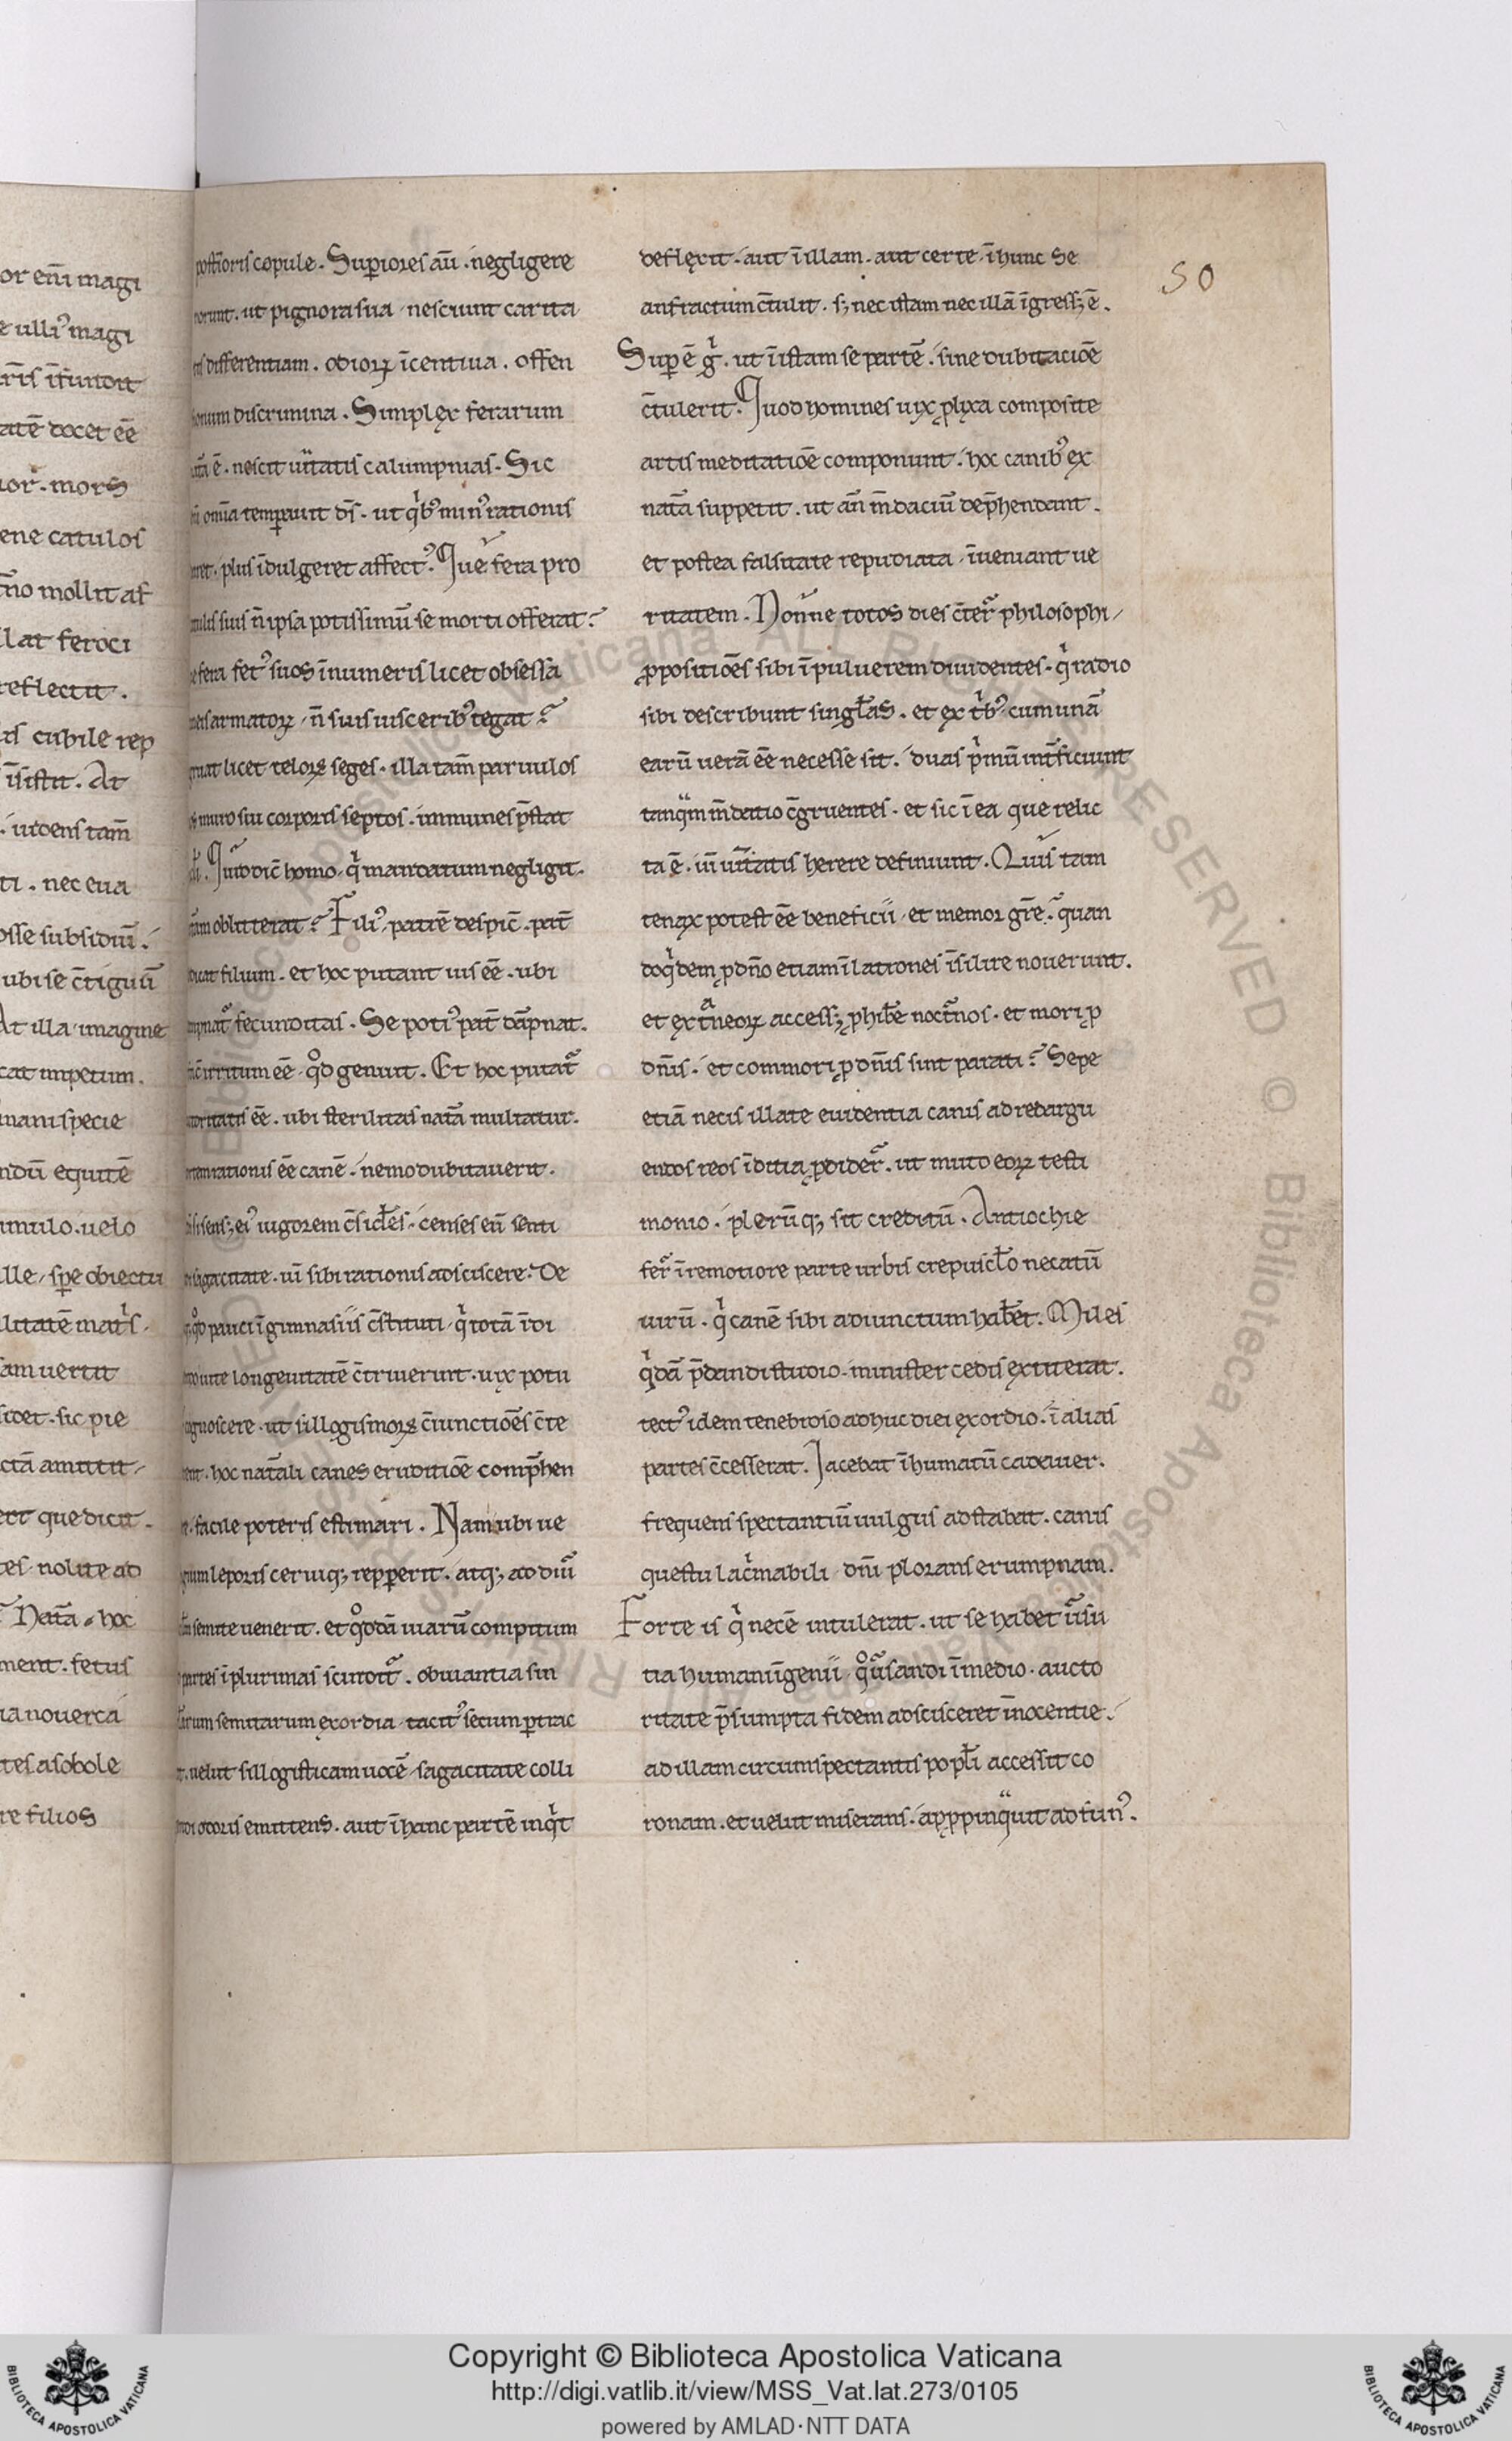 or enī magi
e ulliꝰ magi
r̄is īfundit
atē docet eē
ior. mors
ene catulos
mollit af
llat feroci
reflectit.
cubile rep
īsistit. At
iubens tam̄
ti. nec eua
osse subsidiū.
ubi se c̄tiguū
At illa imagine
cat impetum.
mani specie
ndū equitē
imulo uelo
lle, spe obiectu
litatē matⁱs.
am uertit
sidet. sic pie
ctā amittit
que dicit.
tes nolite ad
Nat̄a hoc
ment. fetus
ia nouerca
tes a sobole
re filios
post̄ioris copule. Supiores aū. negligere
norunt. ut pignora sua nesciunt carita
tis differentiam. odioꝝ īcentiua. offen
sionum discrimina. Simplex ferarum
ē. nescit uītatis calumpnias. Sic
om̄a temperauit ds̄. ut qⁱbꝰ minꝰ rationis
plus īdulgeret affectꝰ. Que fera pro
suis n̄ ipsa potissimū se morti offerat?
fera fetꝰ suos īnumeris licet obsessa
armatoꝝ, n̄ suis uisceribꝰ tegat?
licet teloꝝ seges. illa tam̄ paruulos
muro sui corporis septos. immunes p̄stat
Quid dic̄ homo. qⁱ mandatum negligit.
oblitterat? Filiꝰ patrē despic̄. pat̄
filium. et hoc putant ius eē. ubi
fecunditas. Se potiꝰ pat̄ dāpnat.
irritum eē qᵒd genuit. Et hoc putat᷑
eē. ubi sterilitas nat̄a multatur.
rationis eē canē. nemo dubitauerit.
eiꝰ uigorem c̄sid̄es. censes eū senti
sagacitate. uī sibi rationis adsciscere. De
pauci ī gimnasiis c̄stituti qⁱ totā ī di
longeuitatē c̄triuerunt. uix potu
agnoscere. ut sillogismoꝝ c̄iunctiōes c̄te
hoc nat̄ali canes eruditiōe comp̄hen
facile poteris estimari. Nam ubi ue
leporis ceruiq; repperit. atq; ad diū
semite uenerit. et qᵒddā uiarū compitum
partes ī plurimas scindit᷑. obuiantia sin
semitarum exordia tacitꝰ secum ptrac
uelut sillogisticam uocē sagacitate colli
odoris emittens. aut ī hanc partē inqⁱt
deflexit. aut ī illam. aut certe. ī hunc se
anfractum c̄tulit. s; nec istam nec illā īgress; ē.
Sup ē gⁱ. ut ī istam se partē. sine dubitaciōe
c̄tulerit. Quod homines uix plixa composite
artis meditatiōe componunt. hoc canibꝰ ex
nat̄a suppetit. ut an̄ m̄daciū dep̄hendant.
et postea falsitate repudiata. īueniant ue
ritatem. Nonne totos dies c̄ter᷑ philosophi
ppositiōes sibi ī puluerem diuidentes. qⁱ radio
sibi describunt singl̄as. et ex tⁱbꝰ. cum unā
earū uerā eē necesse sit. duas pⁱmū int̄ficiunt
tanqᵃm m̄datio c̄gruentes. et sic ī ea que relic
ta ē. uī uītatis herere definiunt. Quis tam
tenax potest eē beneficii. et memor gr̄e. quan
doqⁱdem p dn̄o etiam ī latrones īsilire nouerunt.
et ext̄neoꝝ access; phib̄e noct̄nos. et mori p
dn̄is. et commori p dn̄is sunt parati? Sepe
etiā necis illate euidentia canis ad redargu
endos reos īditia pdider᷑. ut muto eoꝝ testi
monio. plerūq; sit creditū. Antiochie
fer᷑ ī remotiore parte urbis crepuscl̄o necatū
uirū. qⁱ canē sibi adiunctum hab̄et. Miles
qⁱdā p̄dandi studio. minister cedis extiterat.
tectꝰ idem tenebroso adhuc diei exordio. ī alias
partes c̄cesserat. Iacebat īhumatū cadauer.
frequens spectantiū uulgus adstabat. canis
questu lacⁱmabili dn̄i plorans erumpnam.
Forte is qⁱ necē intulerat. ut se habet u᷑su
tia humani īgenii qᵒ u᷑sandi ī medio. aucto
ritate p̄sumpta fidem adscisceret īnocentie.
ad illam circumspectantis popl̄i accessit co
ronam. et uelut miserans. appinqᵃuit ad funꝰ.
50
Copyright © Biblioteca Apostolica Vaticana
http://digi.vatlib.it/view/MSS_Vat.lat.273/0105
powered by AMLAD·NTT DATA
BIBLIOTECA APOSTOLICA VATICANA
BIBLIOTECA APOSTOLICA VATICANA